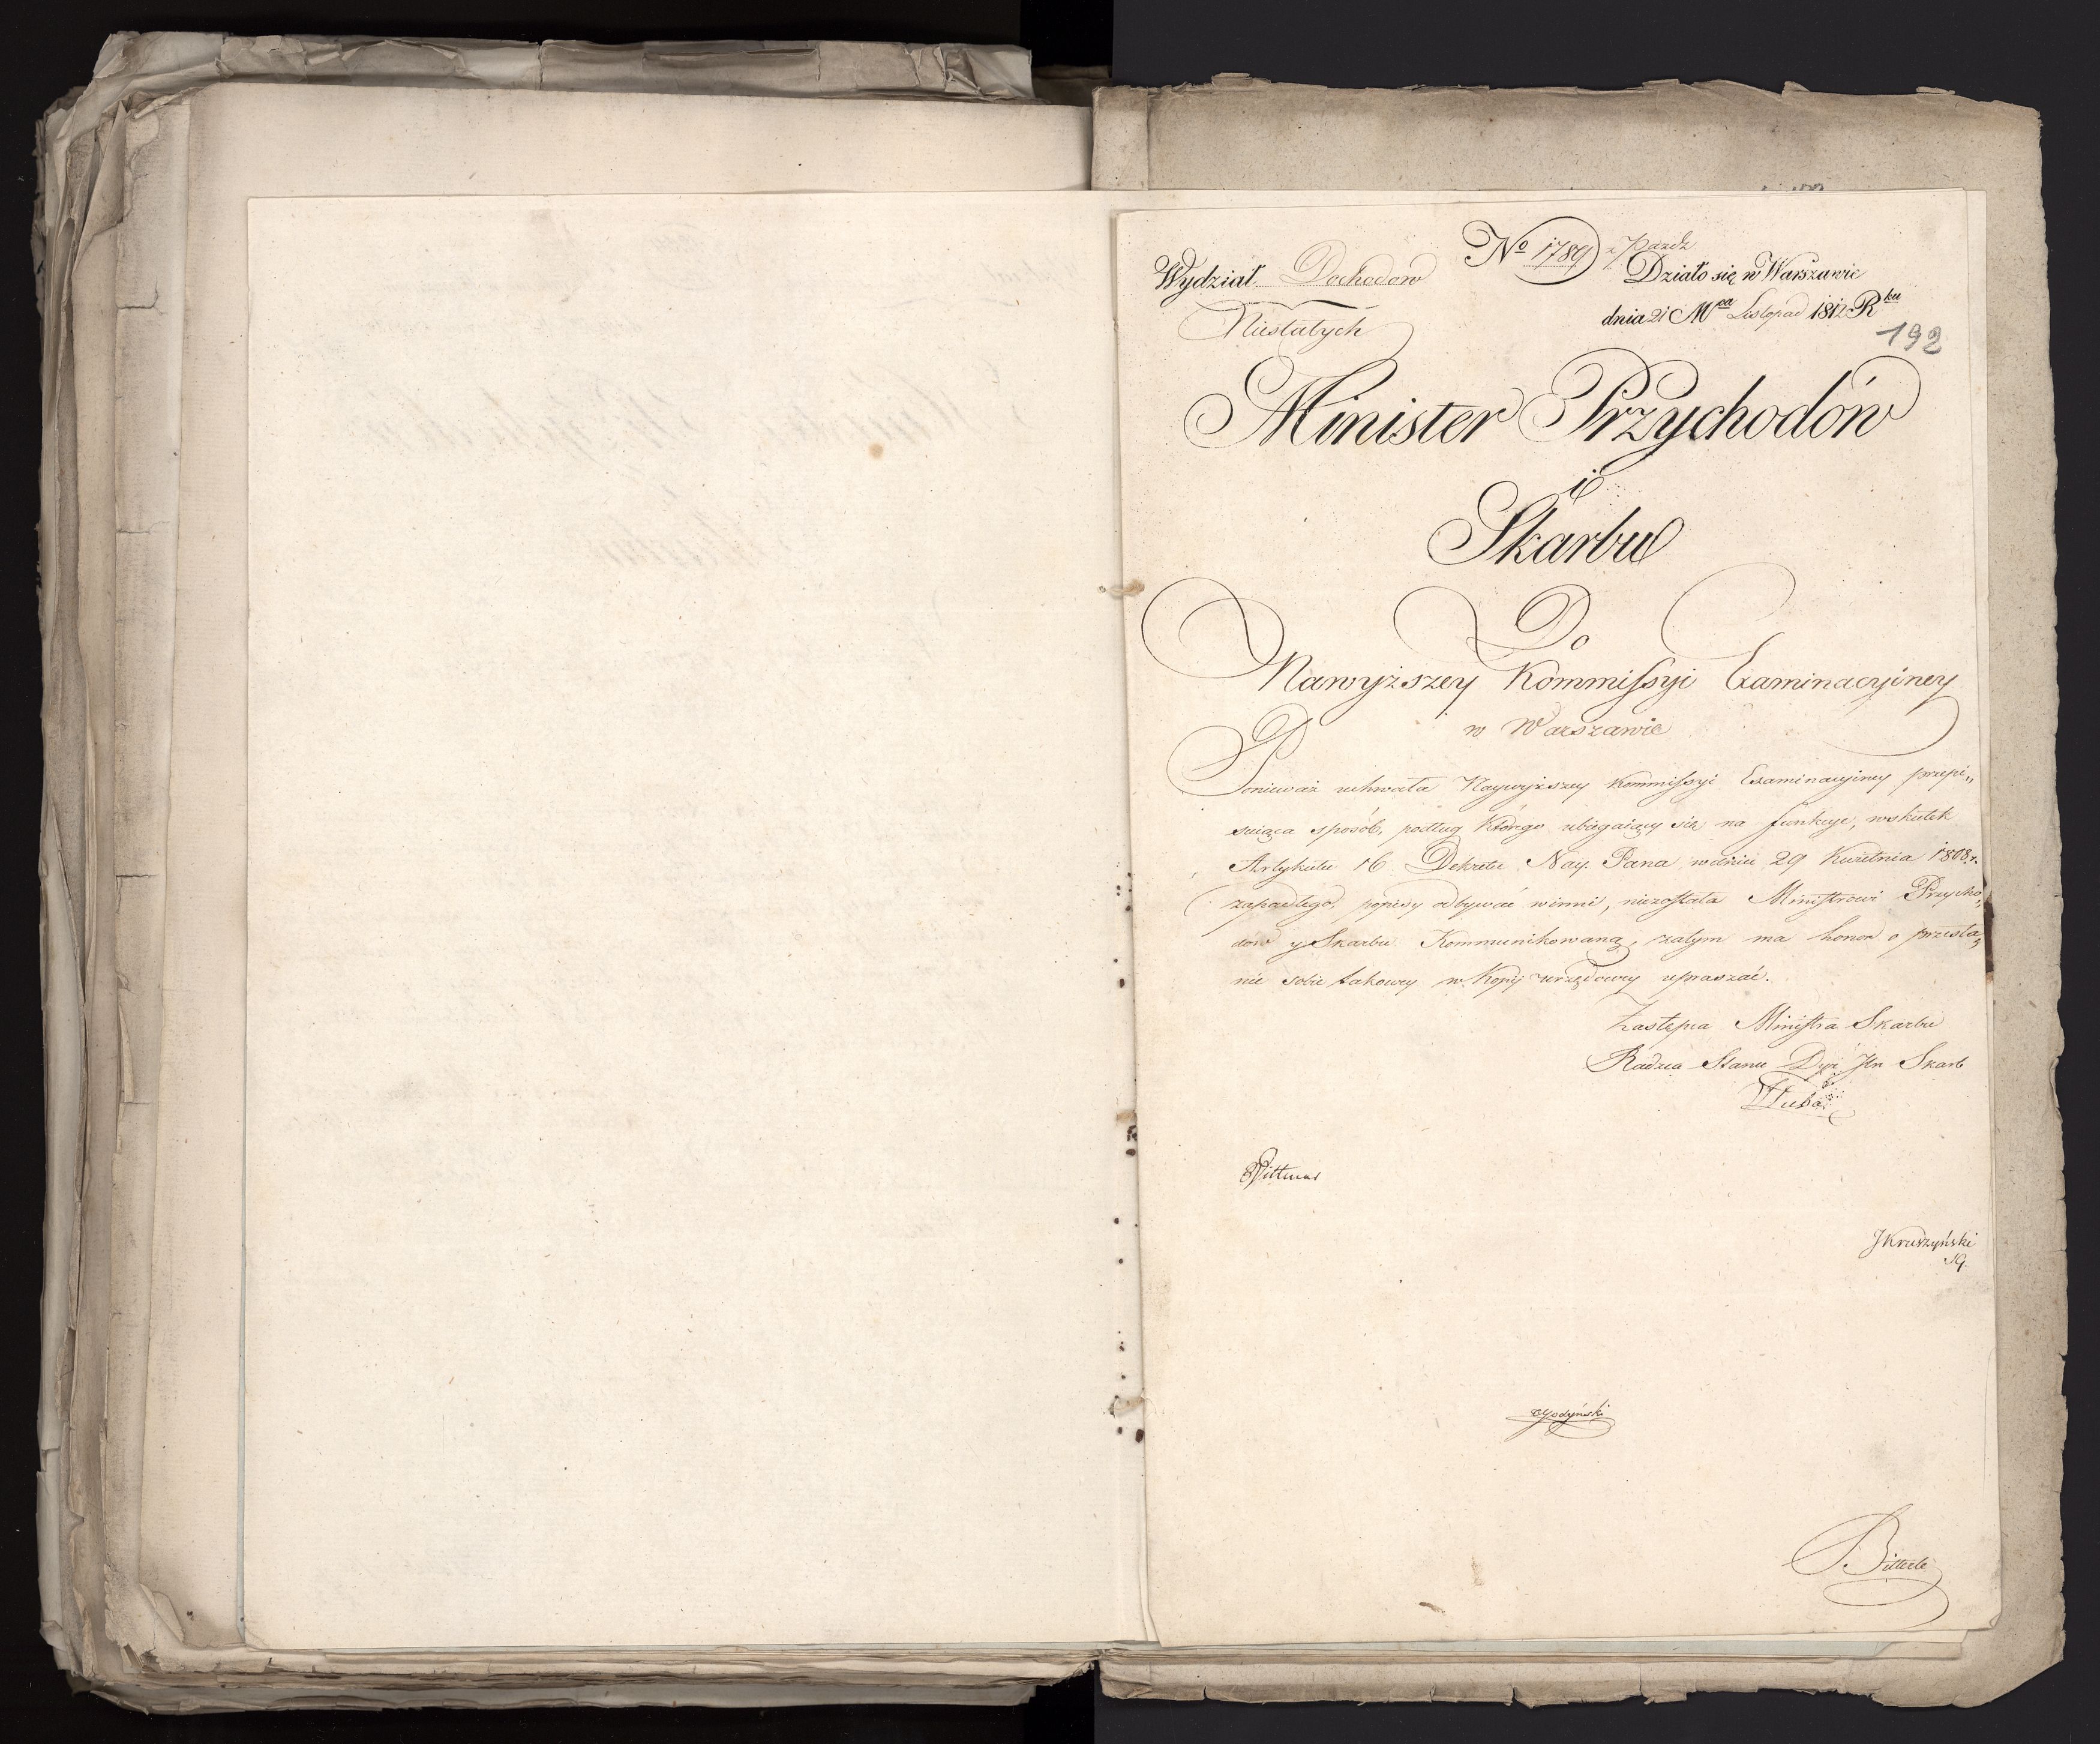 Wydział Dochodow
Niestałych
No 1789 z Pazdz
Działo się w Warszawie
dnia 21 Mca Listopad 1812 Rku
192
Minister Przychodów
i
Skarbu
Do
Nawyższey Kommissyi Examinacyiney
w Warszawie
Ponieważ uchwała Naywyższey Kommissyi Examinacyiney przepi„
suiąca sposób, podług którego ubiegaiący się na funkcye, wskutek
Artykułu 16 Dekretu Nay. Pana w dniu 29 Kwietnia 1808 r.
zapadłego, popisy odbywać winni, niezostała Ministrowi Przycho„
dow y Skarbu Kommunikowaną, zatym ma honor o przesła„
nie sobie takowey w Kopij urzędowey upraszać.
Zastępca Ministra Skarbu
Radca Stanu Dyr. Jln Skarb
Dittmar
JKruszyński
SG.
Bitterle